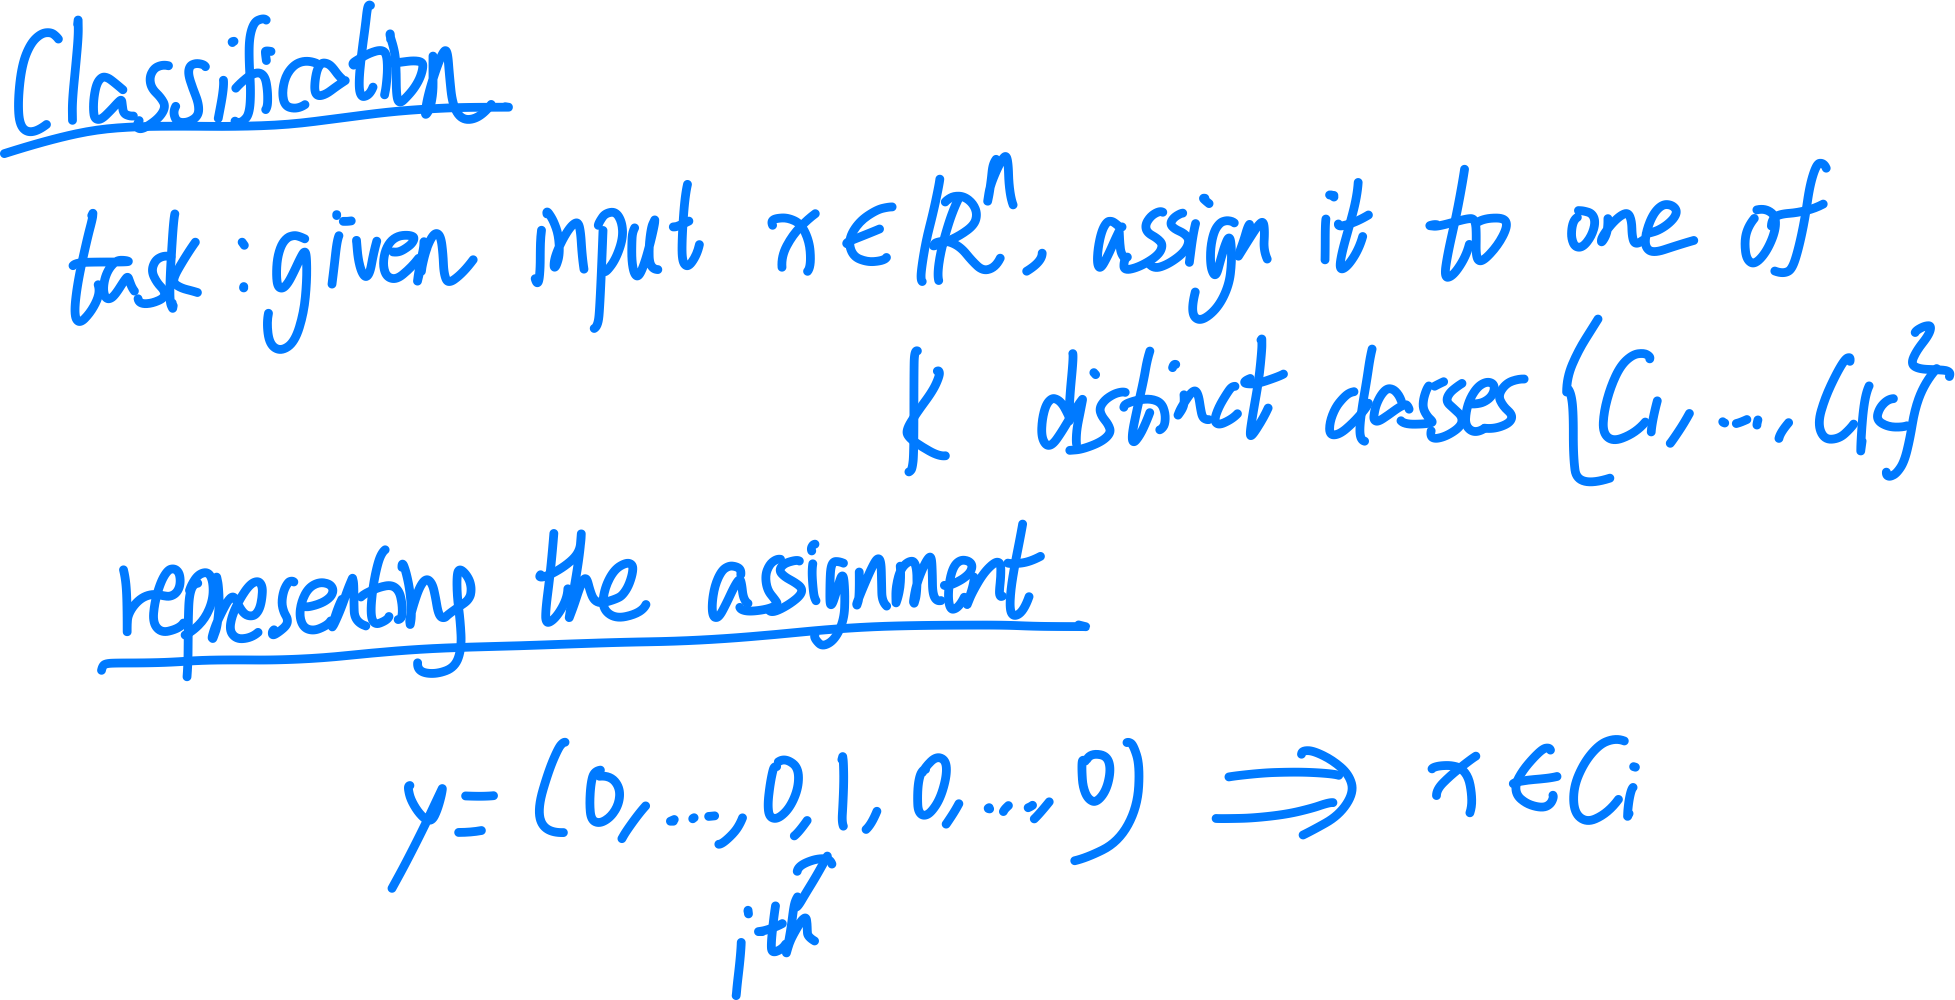 Classification
task: given input x ∈ ℝⁿ, assign it to one of
k distinct classes {C₁, ..., Cₖ}
representing the assignment
y = (0, ..., 0, 1, 0, ..., 0) ⟹ x ∈ Cᵢ
iᵗʰ